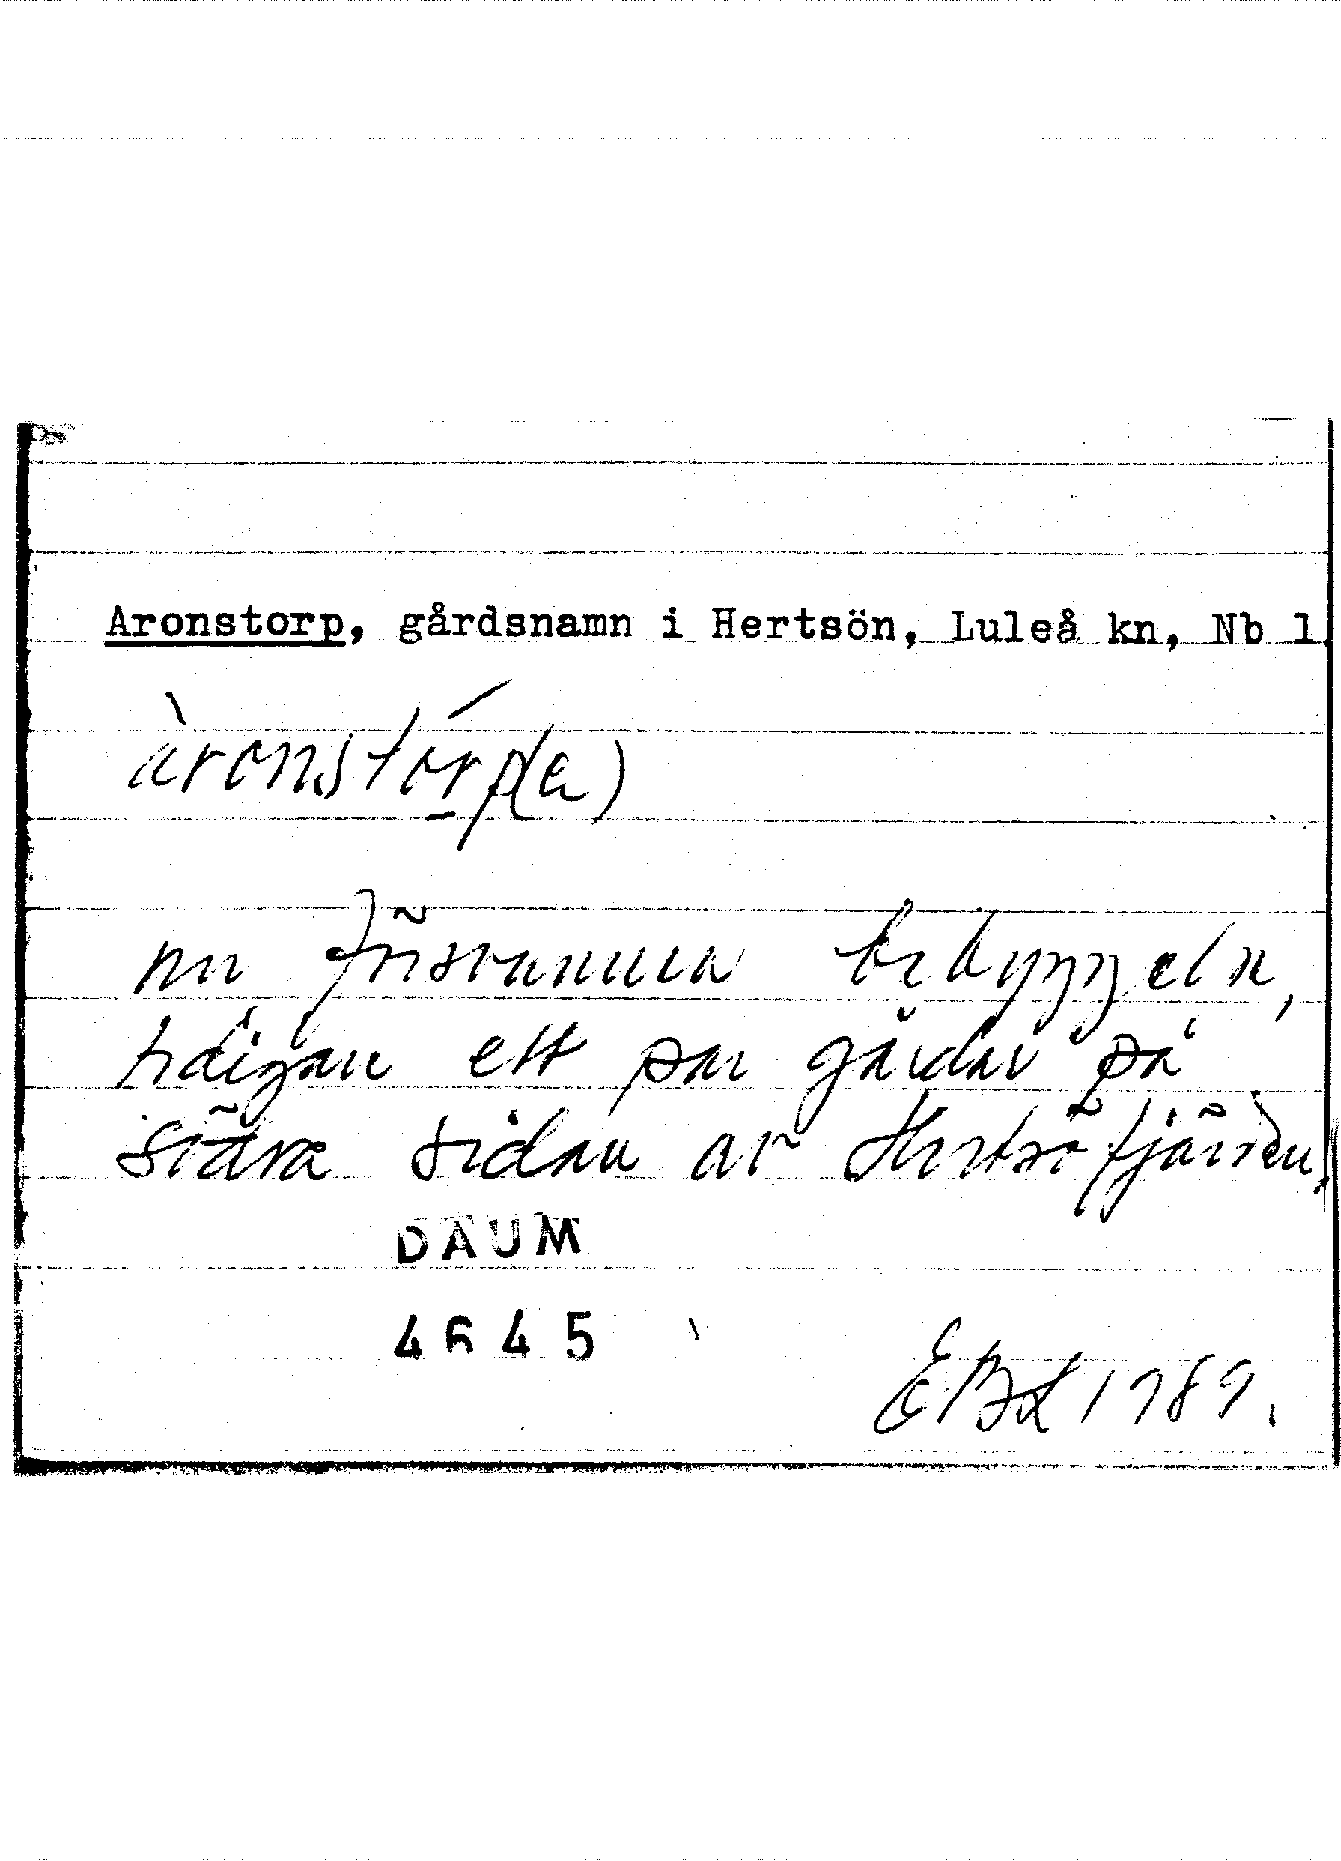 Aronstorp, gårdsnamn i Hertsön, Luleå kn, Nb l.
àronstórp(a)
nu försvunnen bebyggelse,
tidigare ett par gårdar på
södra sidan av Hertsöfjärden.
DAUM
4645
EBL 1989.